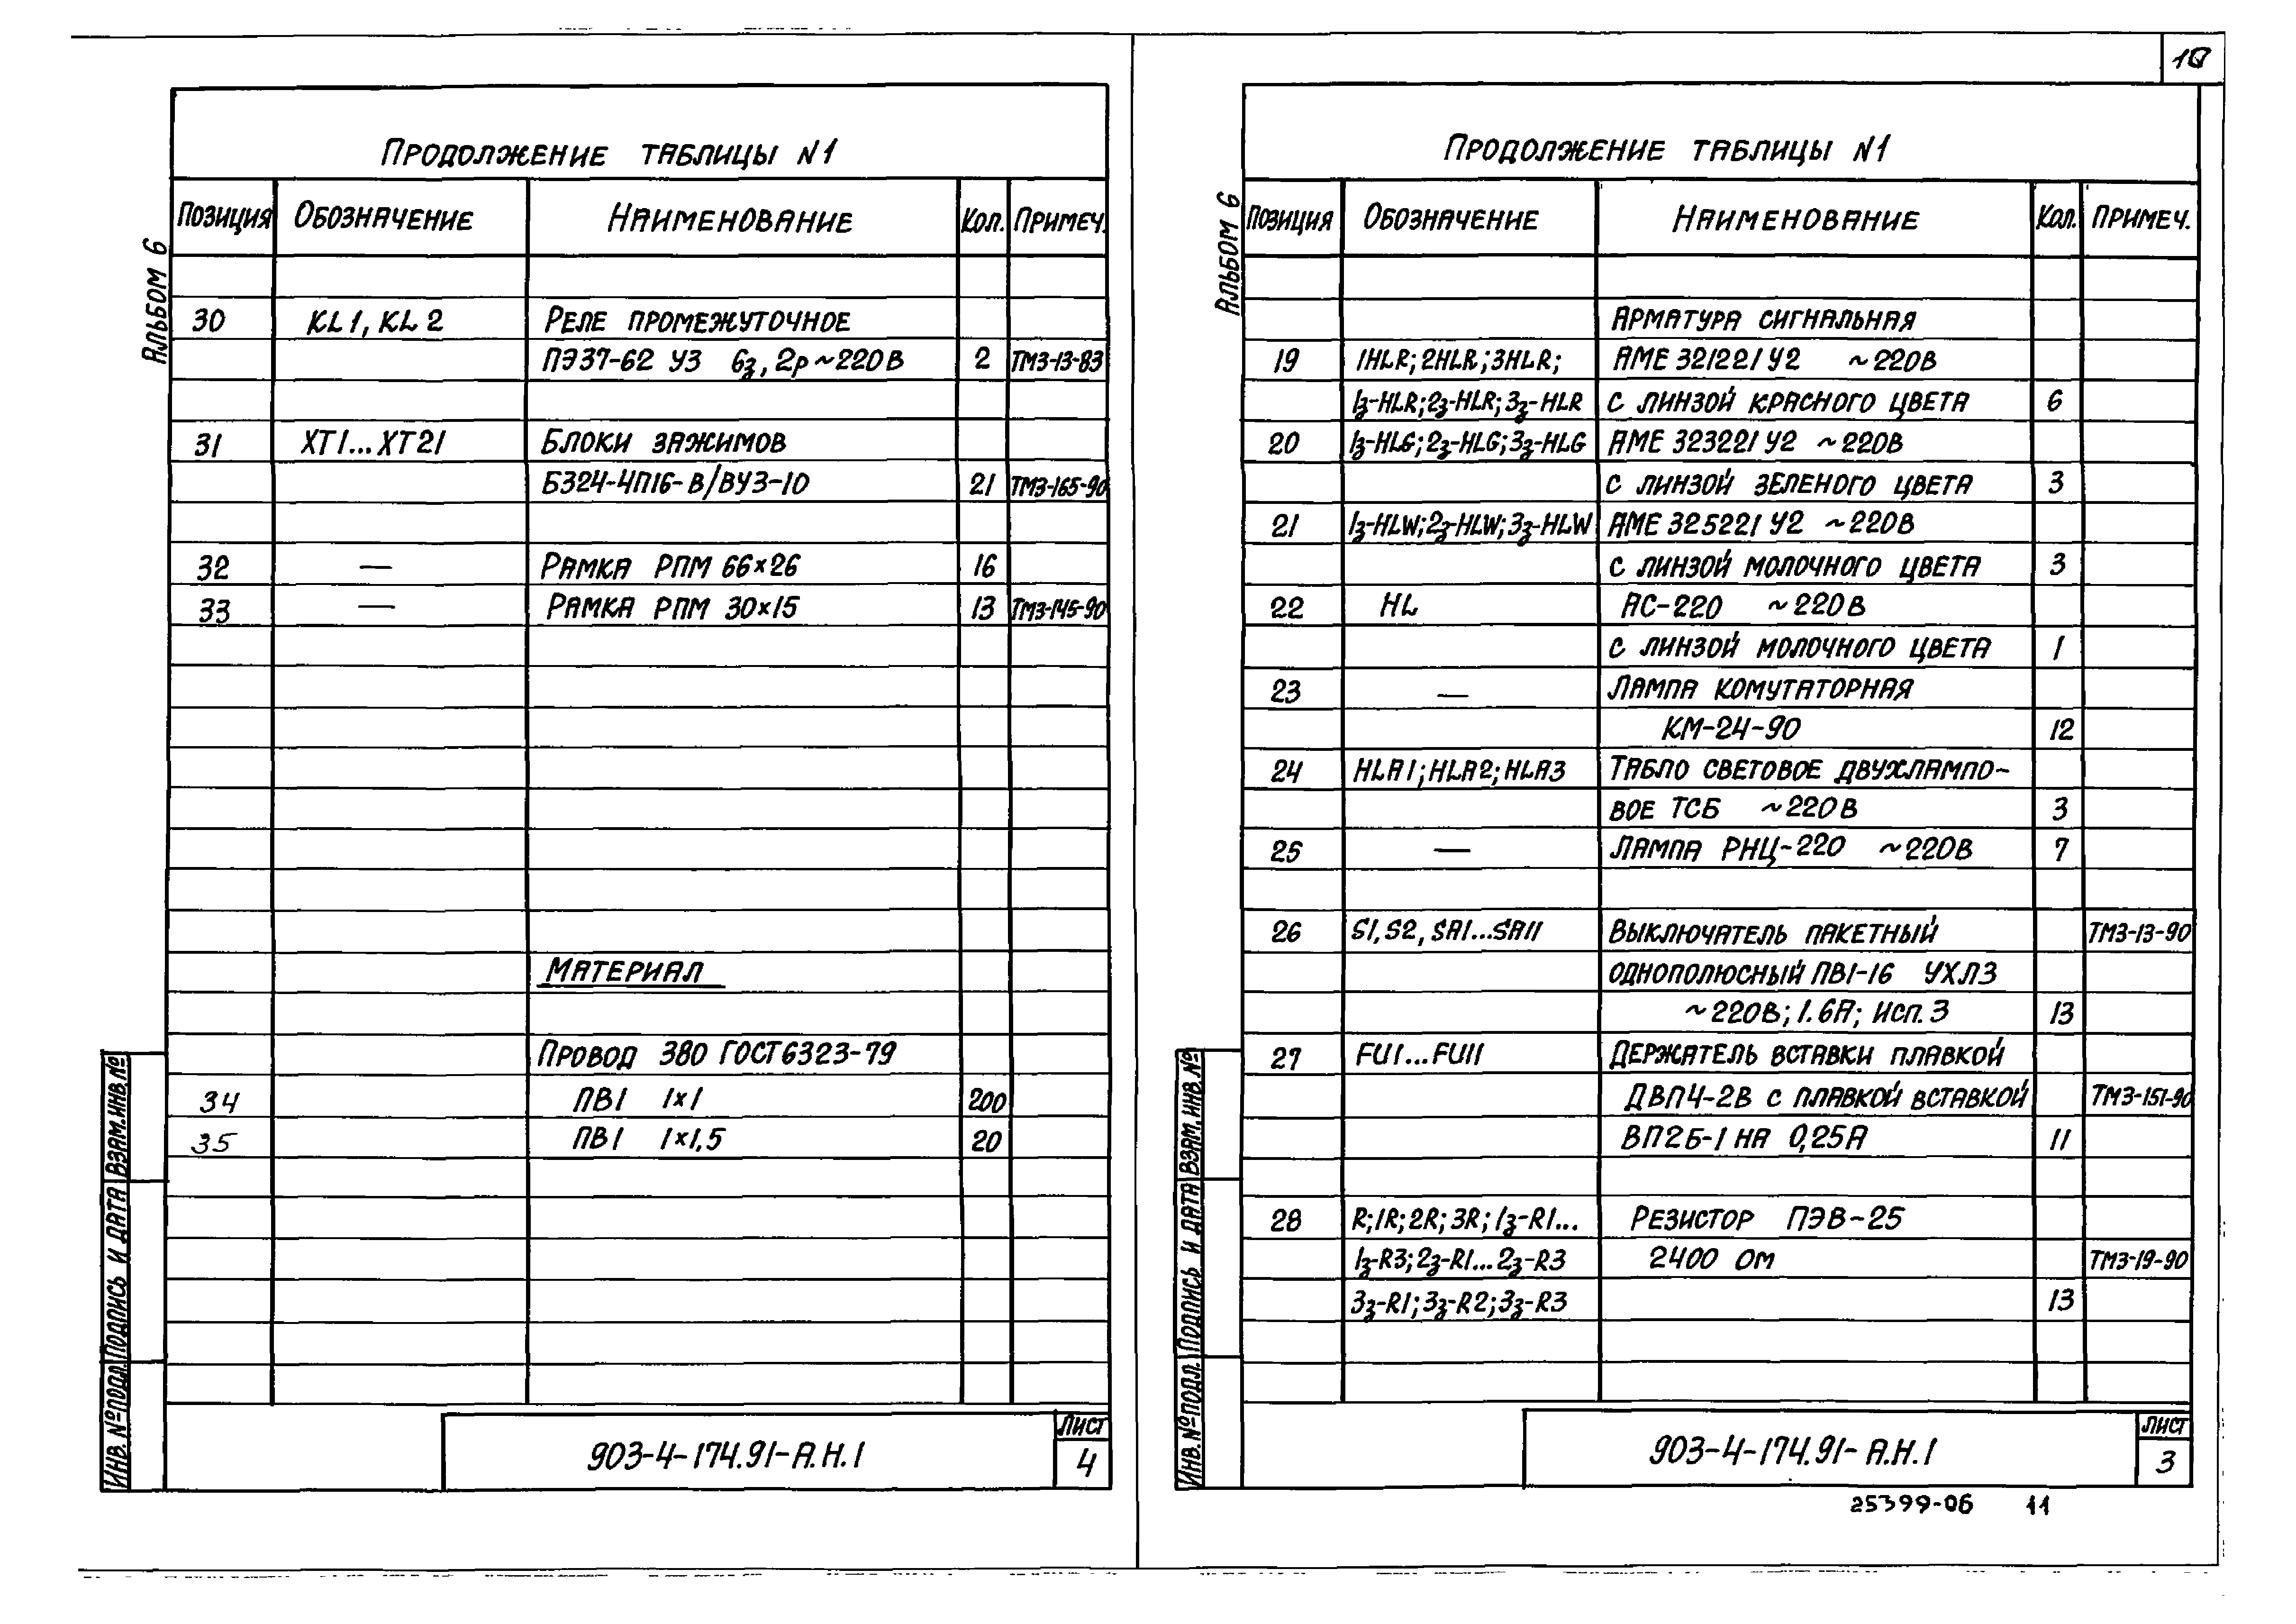 10
ПРОДОЛЖЕНИЕ ТАБЛИЦЫ N1
ПОЗИЦИЯ ОБОЗНАЧЕНИЕ НАИМЕНОВАНИЕ КОЛ. ПРИМЕЧ.
30 KL1, KL2 РЕЛЕ ПРОМЕЖУТОЧНОЕ
ПЭ37-62 У3 6з, 2р ~220В 2 ТМ3-13-83
31 XT1...XT21 БЛОКИ ЗАЖИМОВ
БЗ24-4П16-В/ВУ3-10 21 ТМ3-165-90
32 — РАМКА РПМ 66×26 16
33 — РАМКА РПМ 30×15 13 ТМ3-145-90
МАТЕРИАЛ
ПРОВОД 380 ГОСТ 6323-79
34 ПВ1 1×1 200
35 ПВ1 1×1,5 20
АЛЬБОМ 6
ИНВ. № ПОДЛ. ПОДПИСЬ И ДАТА ВЗАМ. ИНВ. №
903-4-174.91-А.Н.1
ЛИСТ
4
ПРОДОЛЖЕНИЕ ТАБЛИЦЫ N1
ПОЗИЦИЯ ОБОЗНАЧЕНИЕ НАИМЕНОВАНИЕ КОЛ. ПРИМЕЧ.
АРМАТУРА СИГНАЛЬНАЯ
19 1HLR; 2HLR; 3HLR; АМЕ 321221 У2 ~220В
1з-HLR; 2з-HLR; 3з-HLR С ЛИНЗОЙ КРАСНОГО ЦВЕТА 6
20 1з-HLG; 2з-HLG; 3з-HLG АМЕ 323221 У2 ~220В
С ЛИНЗОЙ ЗЕЛЕНОГО ЦВЕТА 3
21 1з-HLW; 2з-HLW; 3з-HLW АМЕ 325221 У2 ~220В
С ЛИНЗОЙ МОЛОЧНОГО ЦВЕТА 3
22 HL АС-220 ~220В
С ЛИНЗОЙ МОЛОЧНОГО ЦВЕТА 1
23 — ЛАМПА КОМУТАТОРНАЯ
КМ-24-90 12
24 HLA1; HLA2; HLA3 ТАБЛО СВЕТОВОЕ ДВУХЛАМПО-
ВОЕ ТСБ ~220В 3
25 — ЛАМПА РНЦ-220 ~220В 7
26 S1, S2, SA1...SA11 ВЫКЛЮЧАТЕЛЬ ПАКЕТНЫЙ ТМ3-13-90
ОДНОПОЛЮСНЫЙ ПВ1-16 УХЛ3
~220В; 1.6А; ИСП. 3 13
27 FU1...FU11 ДЕРЖАТЕЛЬ ВСТАВКИ ПЛАВКОЙ
ДВП4-2В С ПЛАВКОЙ ВСТАВКОЙ ТМ3-151-90
ВП2Б-1 НА 0,25А 11
28 R; 1R; 2R; 3R; 1з-R1... РЕЗИСТОР ПЭВ-25
1з-R3; 2з-R1...2з-R3 2400 ОМ ТМ3-19-90
3з-R1; 3з-R2; 3з-R3 13
АЛЬБОМ 6
ИНВ. № ПОДЛ. ПОДПИСЬ И ДАТА ВЗАМ. ИНВ. №
903-4-174.91-А.Н.1
ЛИСТ
3
25399-06 11